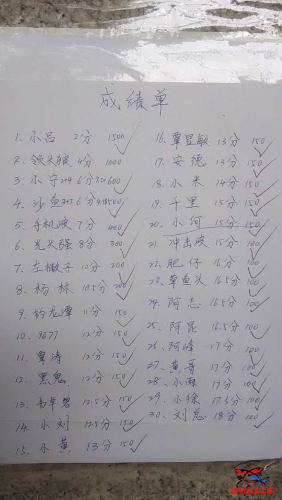 成绩单
1. 小吕 2分 1500
2. 领头狼 4分 1000
3. 小宁 6分 600
4. 鲨鱼 6分 500
5. 手机波 7分 400
6. 光头强 8分 300
7. 左撇子 10分 200
8. 杨栋 10.5分 200
9. 钓龙潭 11分 150
10. 9677 12分 150
11. 覃涛 12分 150
12. 黑鬼 12分 150
13. 韦华碧 12.5分 150
14. 小刘 12.5分 150
15. 小黄 13分 150
16. 覃昱敏 13分 150
17. 安德 13分 150
18. 小米 14分 150
19. 千里 15分 150
20. 小何 15分 150
21. 冲击波 15分 100
22. 肥仔 16分 100
23. 草鱼头 16.5分 100
24. 阿志 16.5分 100
25. 阿昆 16.5分 100
26. 阿峰 17分 100
27. 黄哥 17分 100
28. 小海 17分 100
29. 小徐 17.5分 100
30. 刘总 18分 100